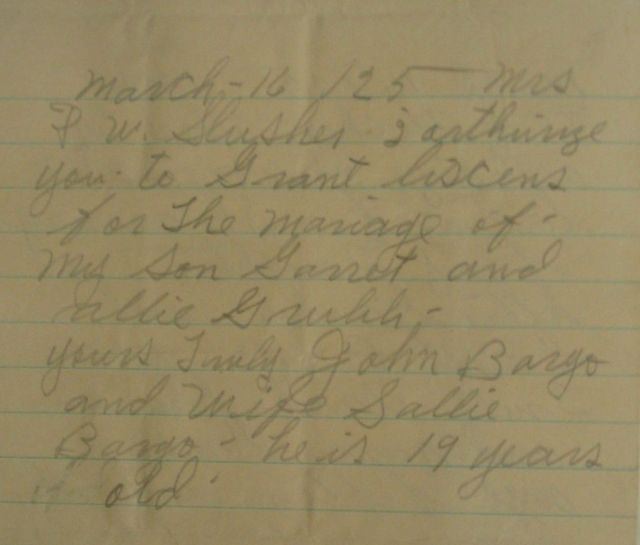 March - 16 / 25 — Mrs
F W. Slusher i arthurize
you to Grant liscens
for The mariage of -
My Son Garret and
allie Grubb -
yours Truly John Bargo
and Wife Sallie
Bargo - he is 19 years
old